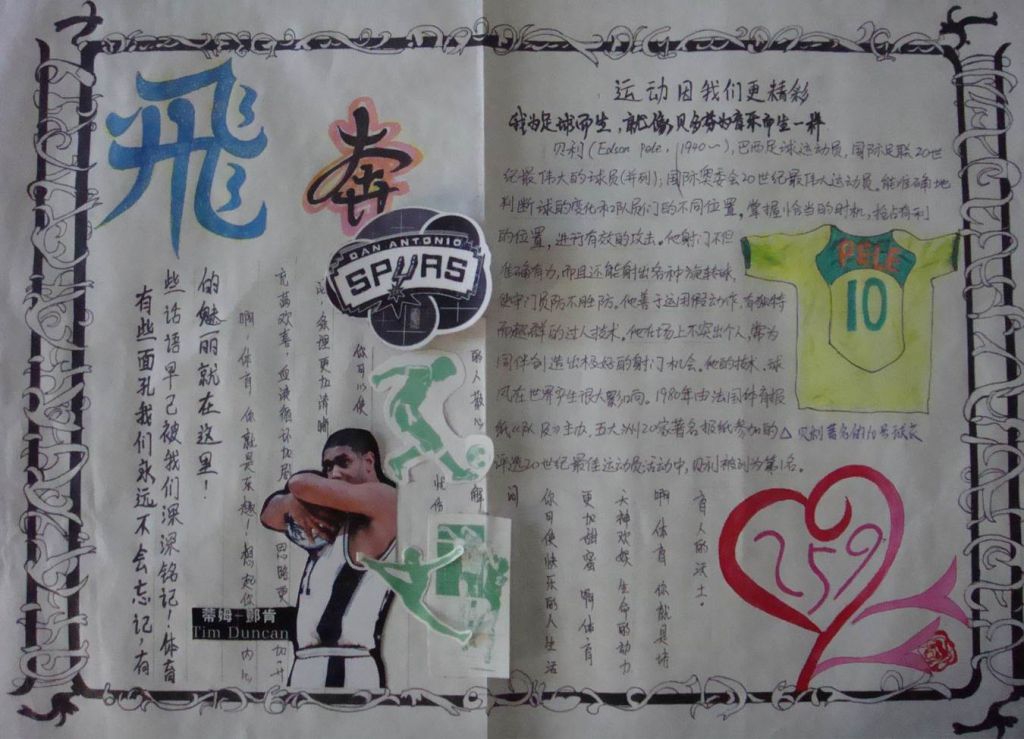 飛
奔
DAN ANTONIO
SPURS
有些面孔我们永远不会忘记,有
些话语早已被我们深深铭记!体育
的魅丽就在这里!
蒂姆-邓肯
Tim Duncan
运动因我们更精彩
我为足球而生,就像贝多芬为音乐而生一样
贝利(Edson pele, 1940~),巴西足球运动员,国际足联20世
纪最伟大的球员(并列);国际奥委会20世纪最伟大运动员。能准确地
判断球的变化和队员们的不同位置,掌握恰当的时机,抢占有利
的位置,进行有效的攻击。他射门不但
准确有力,而且还能射出各种旋转球,
使守门员防不胜防。他善于运用假动作,有独特
而超群的过人技术。他在场上不突出个人,常为
同伴创造出极好的射门机会。他的技术、球
风在世界产生很大影响。1980年由法国体育报
纸《队报》主办,五大洲20家著名报纸参加的
评选20世纪最佳运动员活动中,贝利被列为第1名。
PELE
10
△贝利著名的10号球衣
育人的沃土。
啊 体育 你就是培
天神欢娱 生命的动力
更加甜蜜 啊 体育
你可使快乐的人生活
259